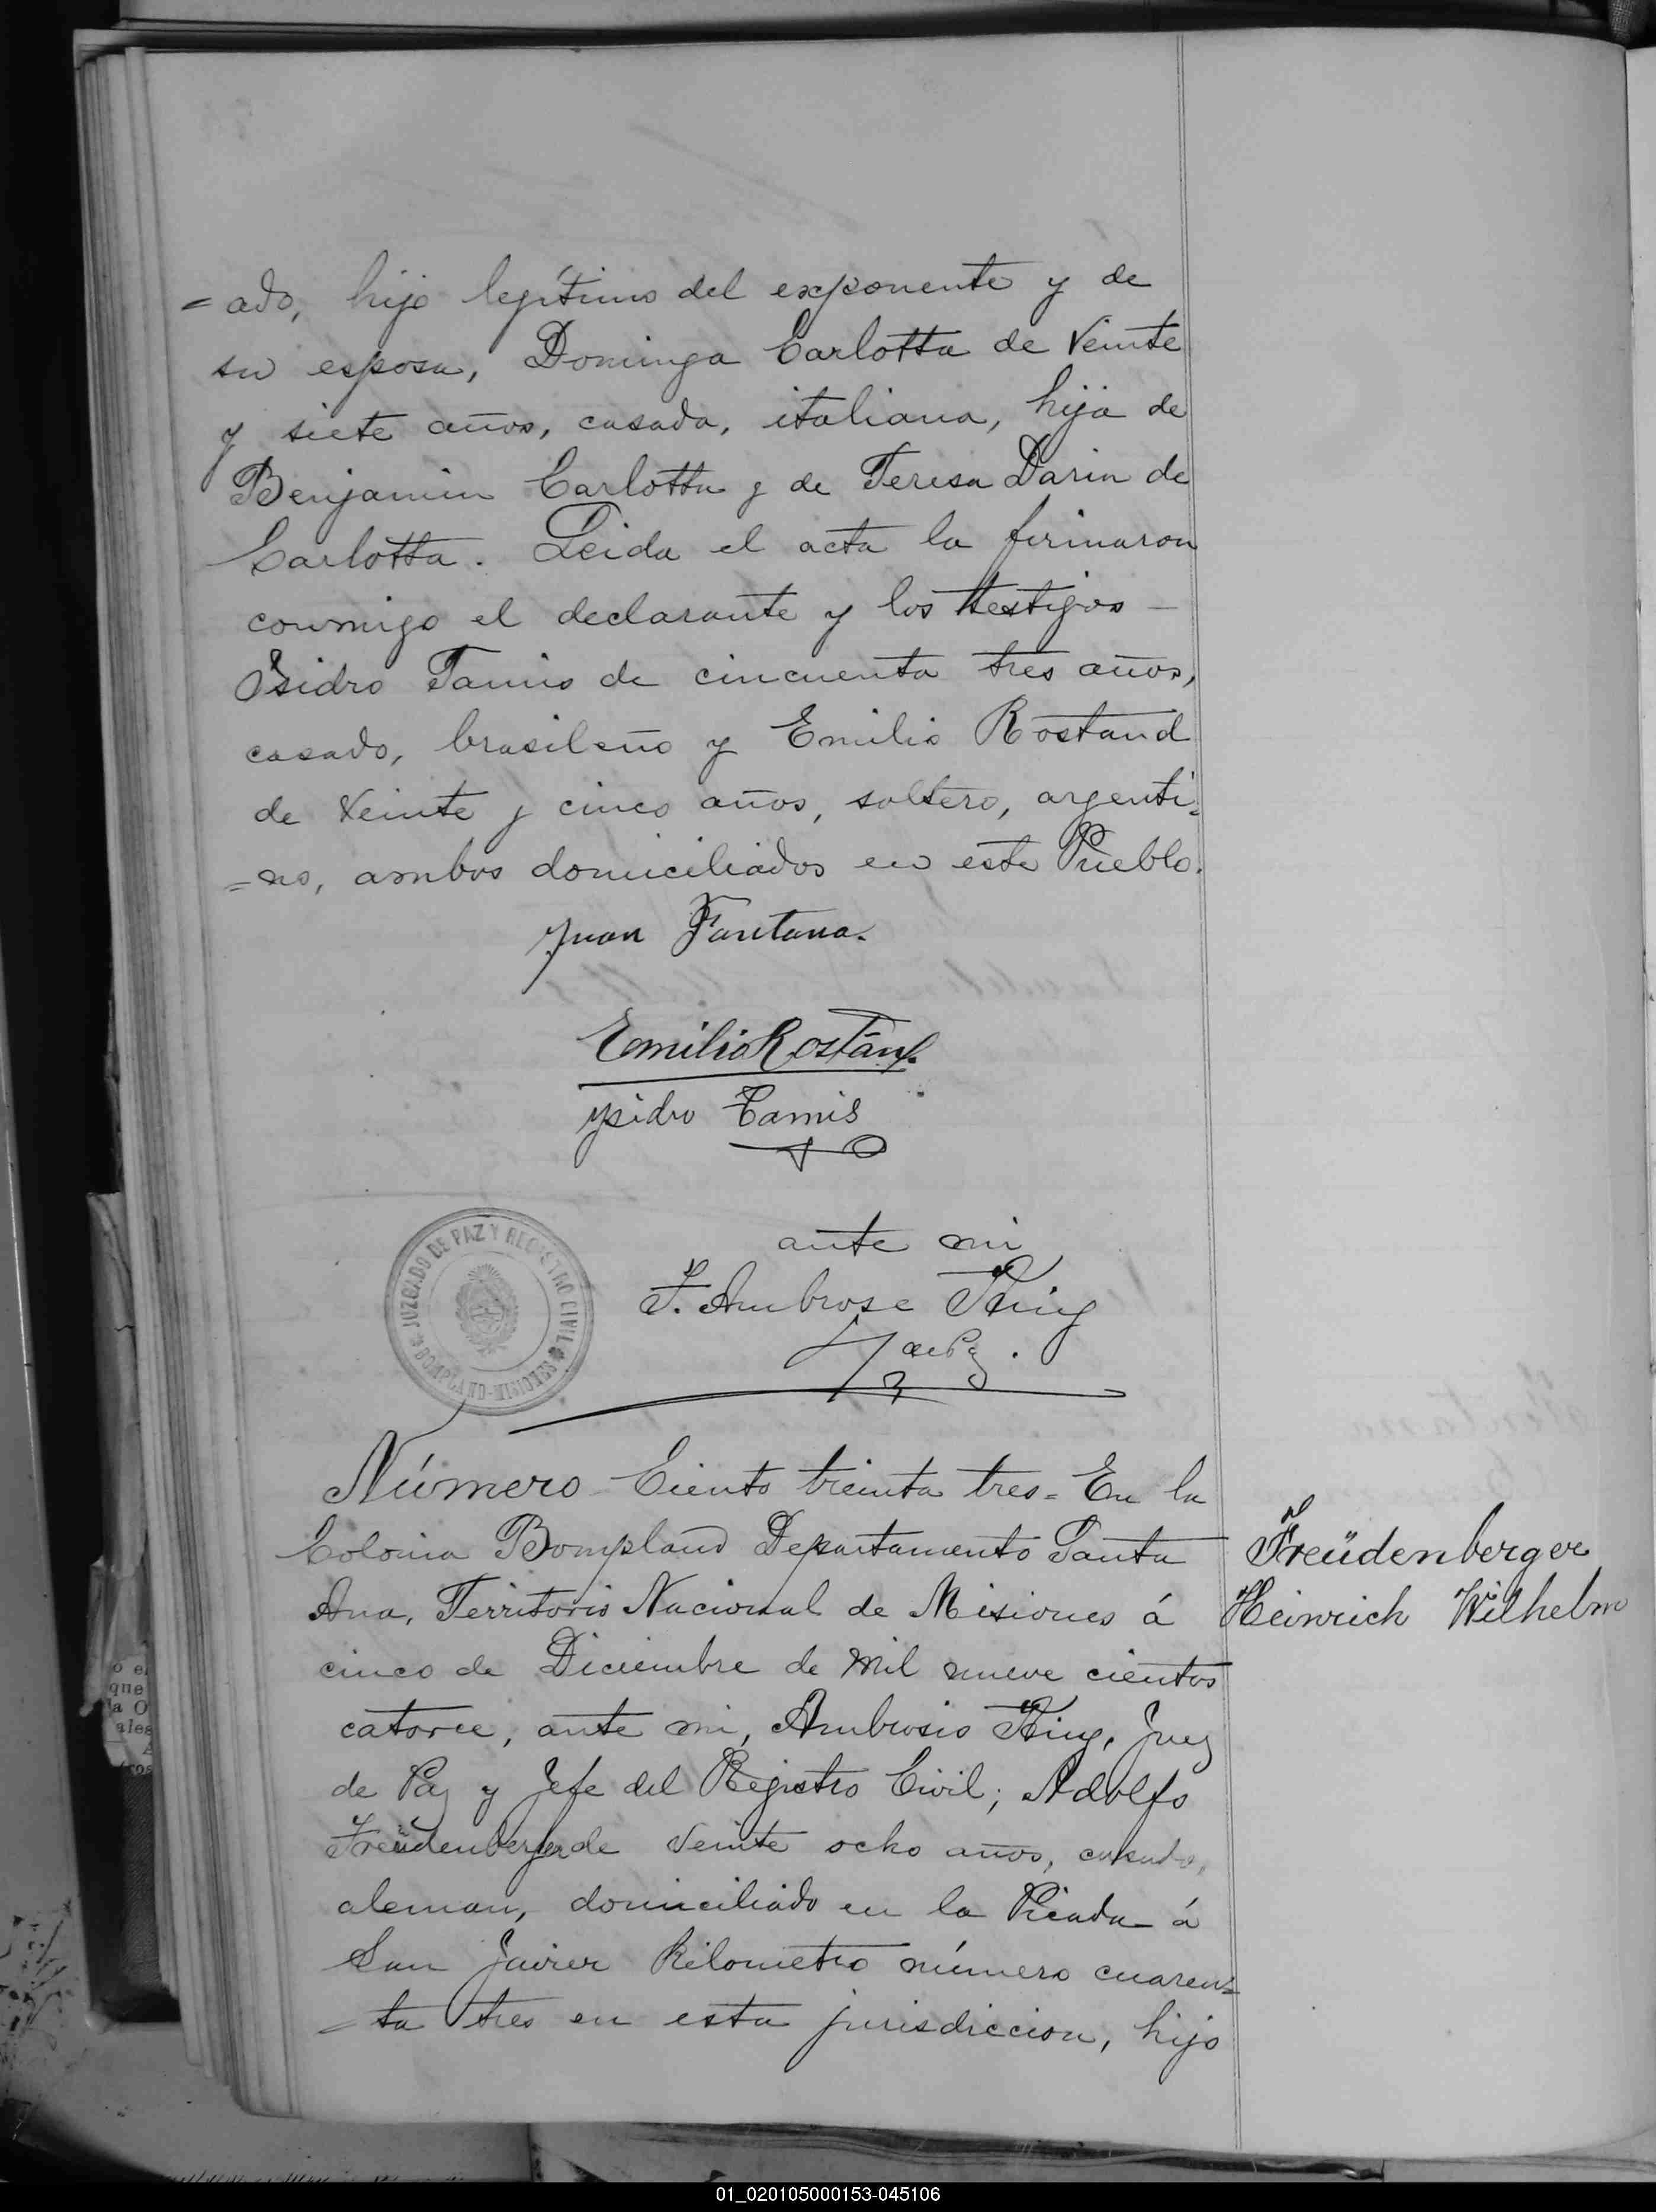 = ado, hijo legítimo del exponente y de
su esposa, Dominga Carlotta de Veinte
y siete años, casada, italiana, hija de
Benjamin Carlotta y de Teresa Darin de
Carlotta. Leida el acta la firmaron
conmigo el declarante y los testigos -
Isidro Tamis de cincuenta tres años,
casado, brasileño y Emilio Rostand
de Veinte y cinco años, soltero, argenti=
=no, ambos domiciliados en este Pueblo.
Juan Fontana.
Emilio Rostand
Ysidro Tamis
ante mi
F. Ambrose King
JUZGADO DE PAZ Y REGISTRO CIVIL
BOMPLAND-MISIONES
Número Ciento treinta tres= En la
Colonia Bompland Departamento Santa
Ana, Territorio Nacional de Misiones á
cinco de Diciembre de Mil nueve cientos
catorce, ante mi, Ambrosio King, Juez
de Paz y Jefe del Registro Civil; Adolfo
Freüdenberger de Veinte ocho años, casado,
aleman, domiciliado en la Picada á
San Javier Kilometro número cuaren=
=ta tres en esta jurisdiccion, hijo
Freüdenberger
Heinrich Wilhelm
o e
que
la O
ales
01_020105000153-045106